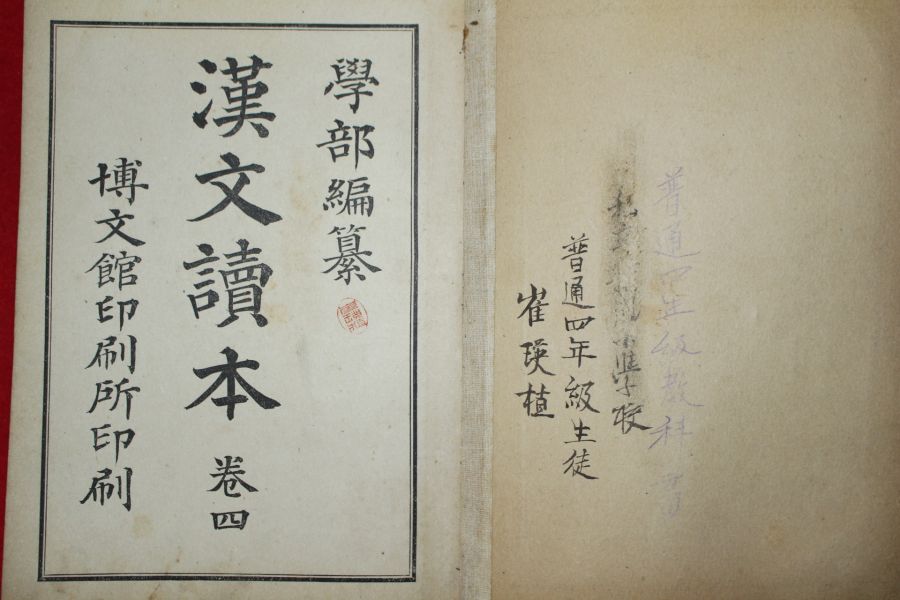 普通四年級教科書
私立學校
普通四年級生徒
崔瑛植
學部編纂
漢文讀本 卷四
博文館印刷所印刷